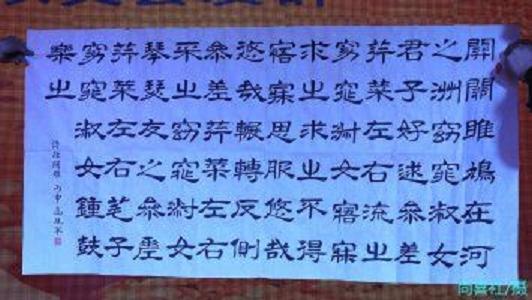 關關雎鳩在河
之洲窈窕淑女
君子好逑參差
荇菜左右流之
窈窕淑女寤寐
求之求之不得
寤寐思服悠哉
悠哉輾轉反側
參差荇菜左右
采之窈窕淑女
琴瑟友之參差
荇菜左右芼之
窈窕淑女鍾鼓
樂之
詩經關雎 丙申